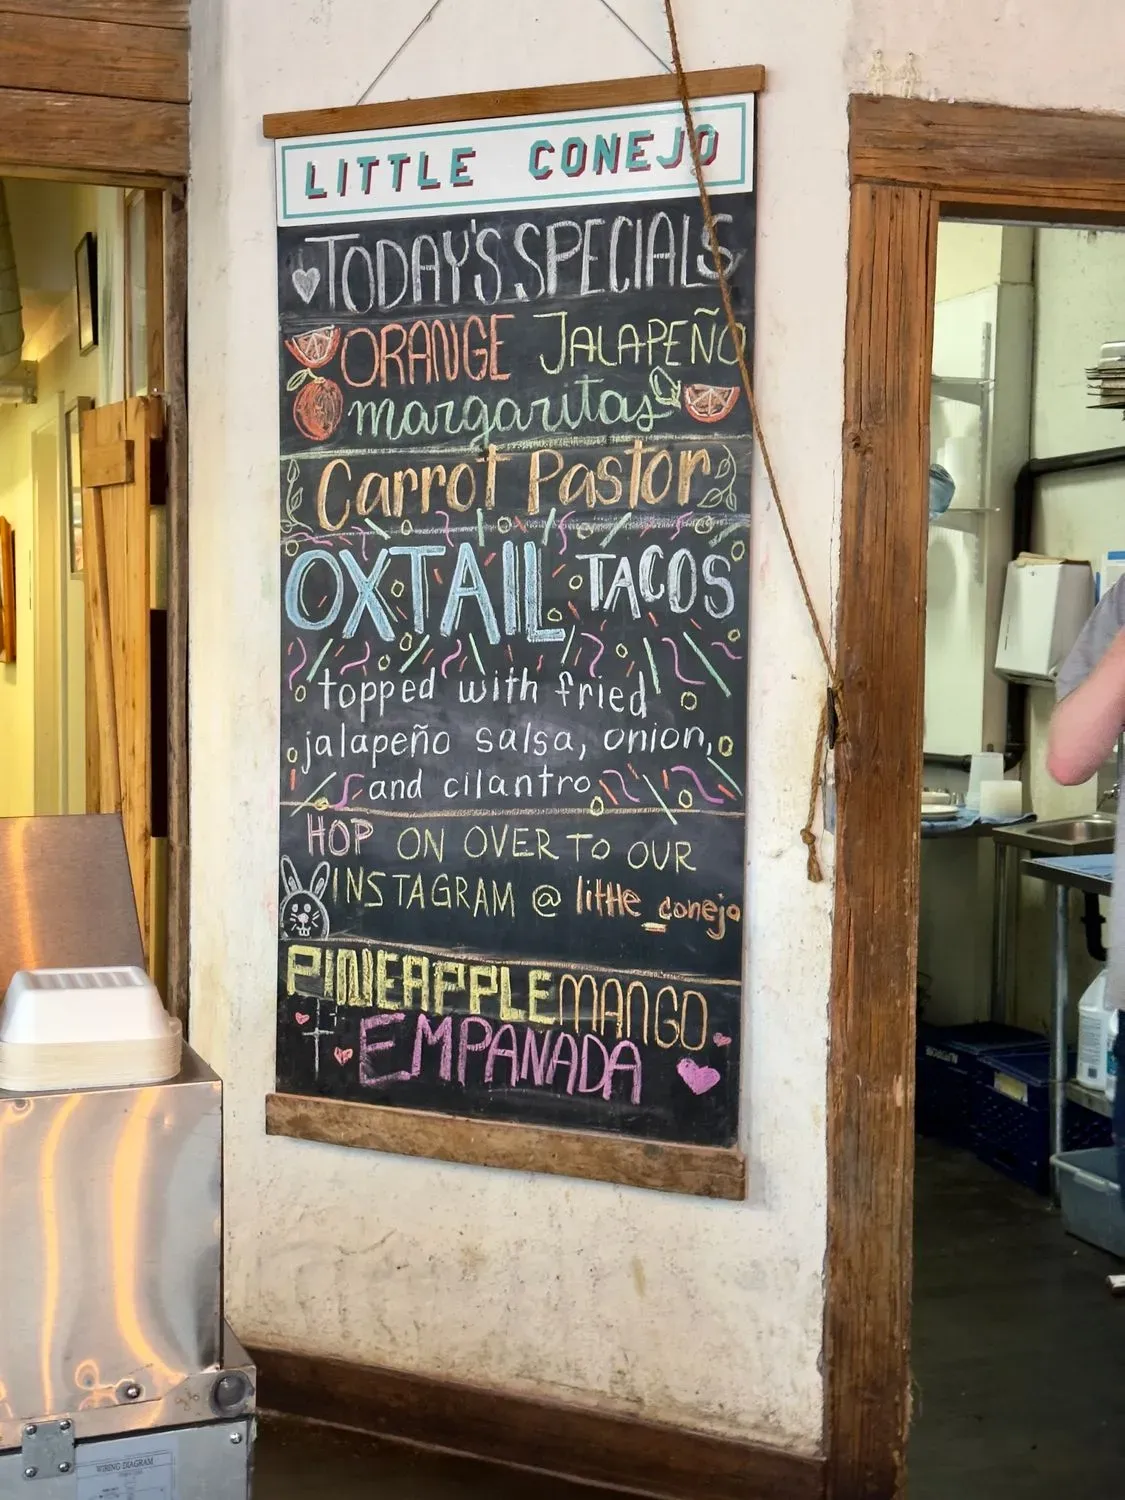 LITTLE CONEJO
TODAY'S SPECIALS
ORANGE JALAPEÑO
margaritas
Carrot Pastor
OXTAIL TACOS
topped with fried
jalapeño salsa, onion,
and cilantro
HOP ON OVER TO OUR
INSTAGRAM @ little_conejo
PINEAPPLE MANGO
EMPANADA
WIRING DIAGRAM